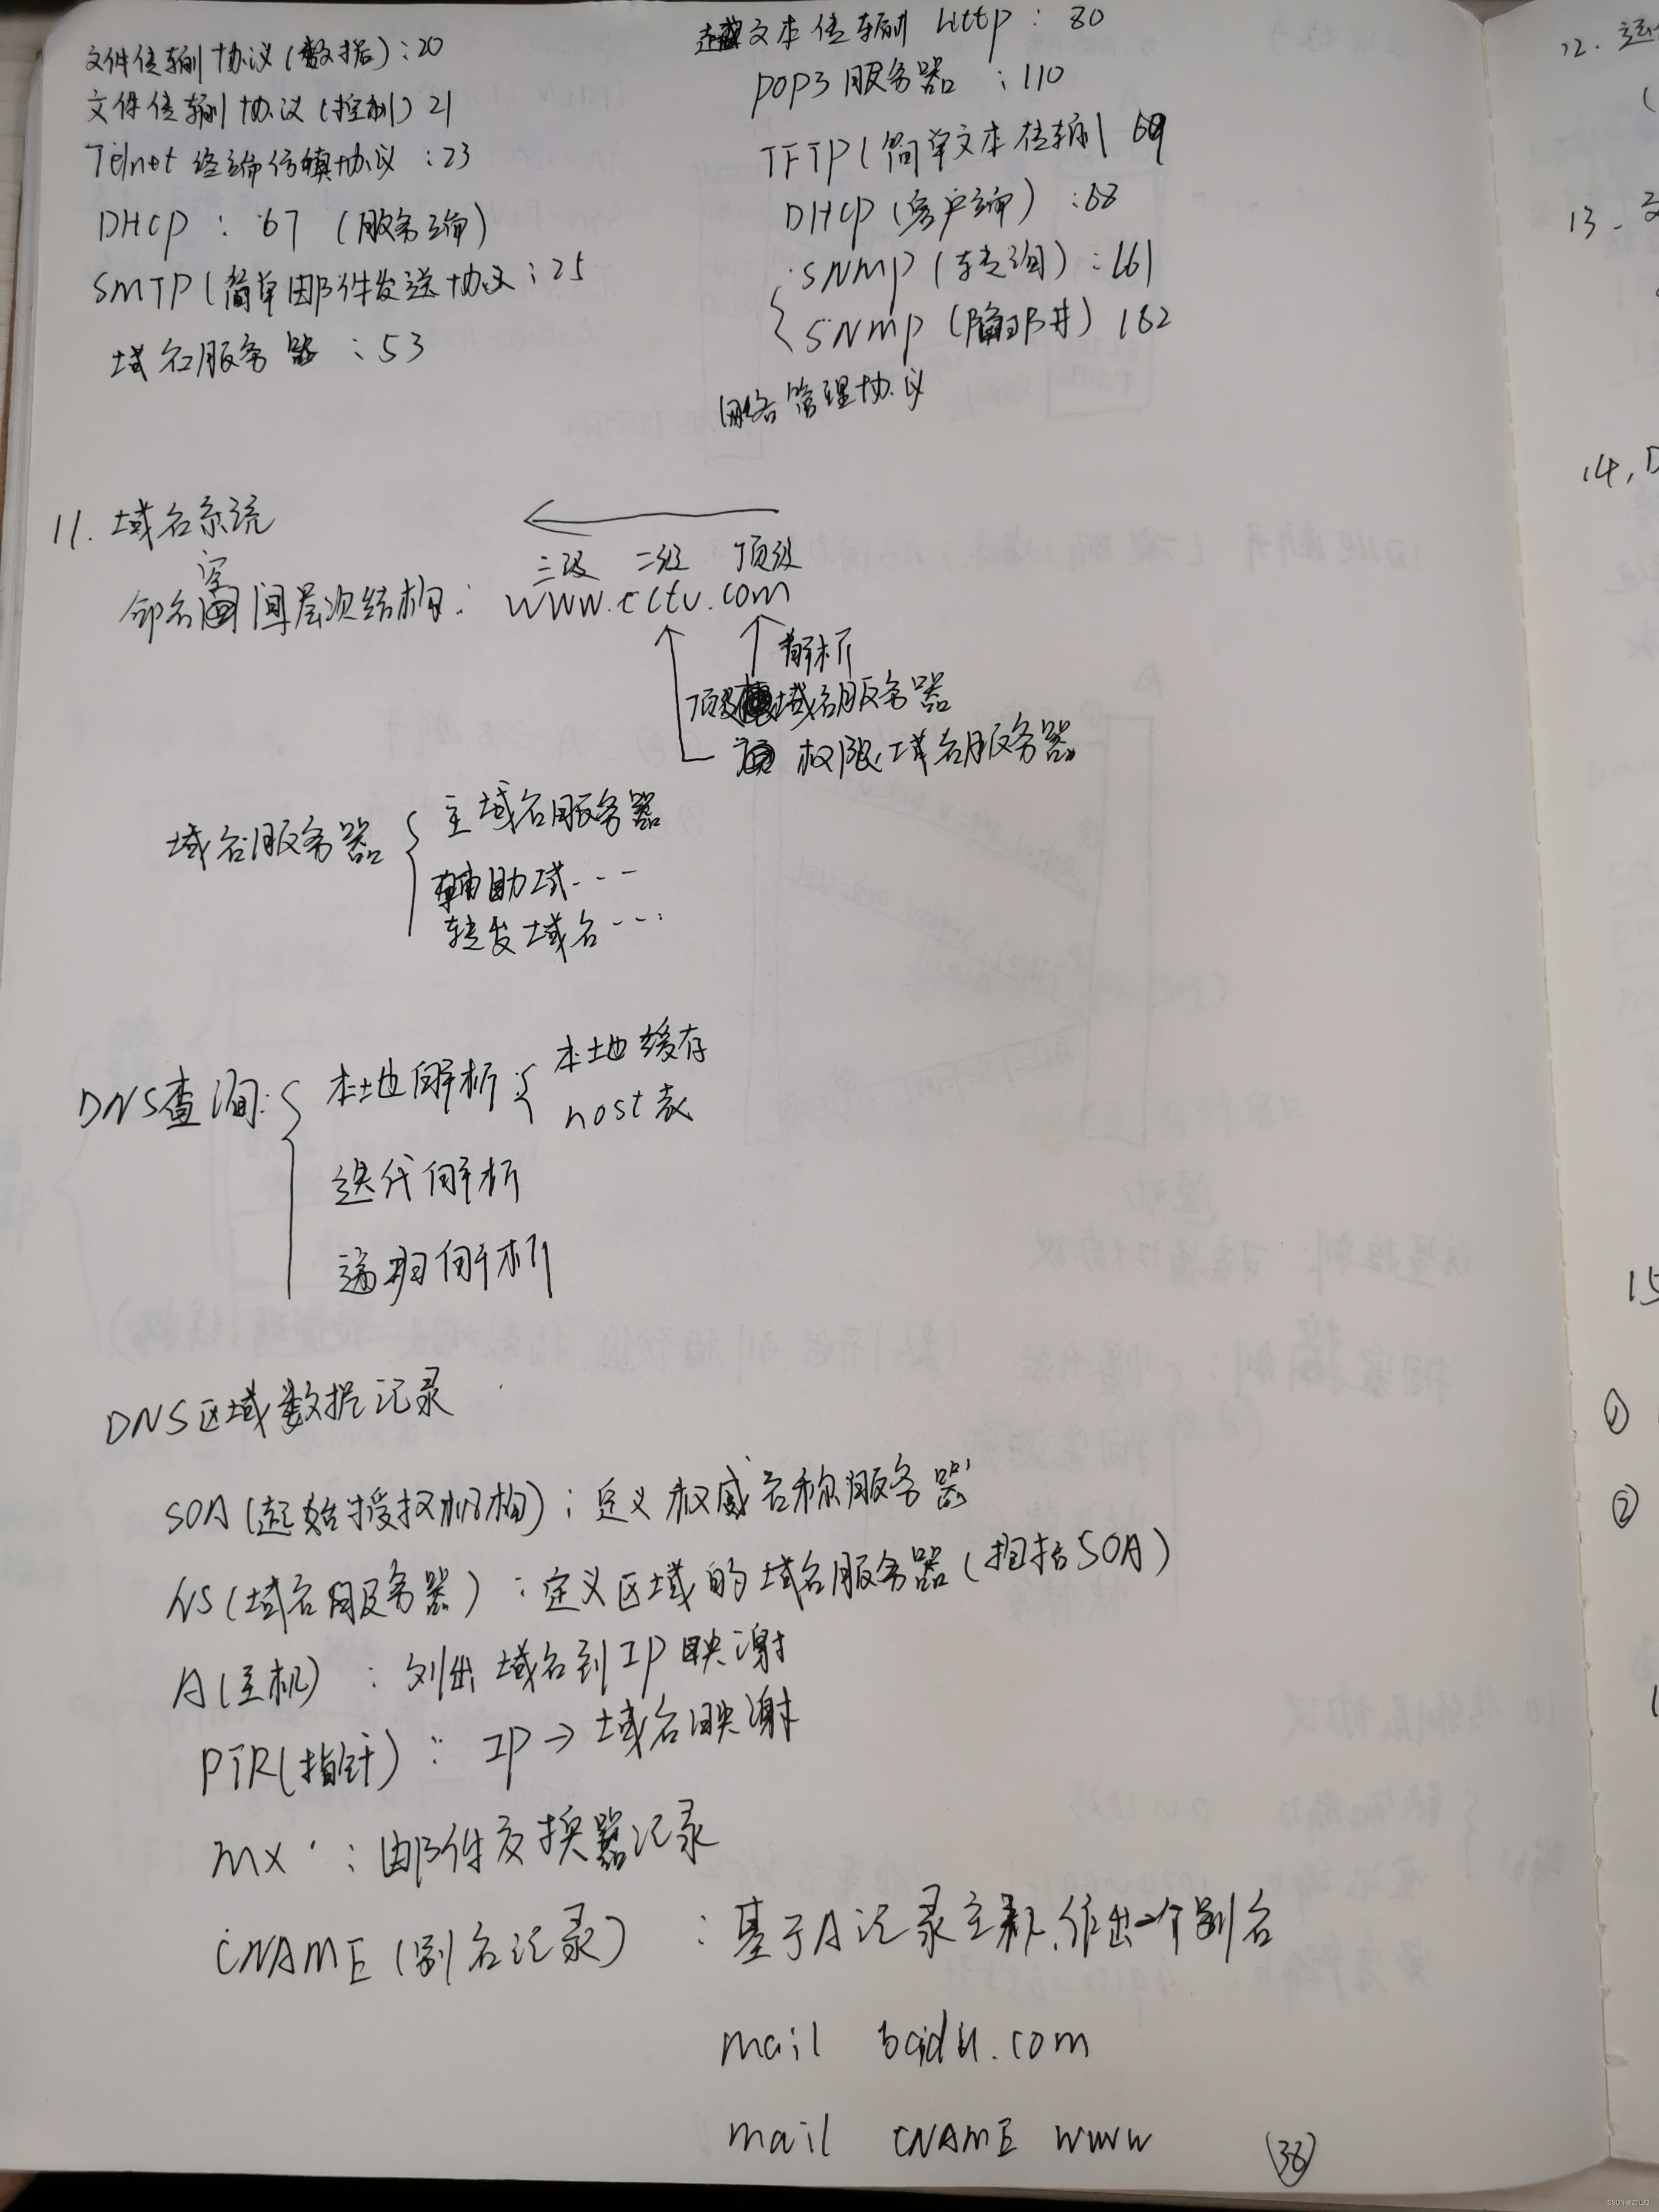 文件传输协议(数据):20
文件传输协议(控制) 21
Telnet 终端仿真协议:23
DHCP:67 (服务端)
SMTP(简单邮件发送协议:25
域名服务器:53
超文本传输 Http:80
POP3服务器:110
TFTP(简单文本传输 69
DHCP(客户端):68
SNMP(轮询):161
SNMP(陷阱) 162
网络管理协议
11. 域名系统
三级 二级 顶级
命名空间层次结构:www.cctv.com
解析
顶级域名服务器
权限域名服务器
域名服务器
主域名服务器
辅助域...
转发域名...
DNS查询:
本地解析:
本地缓存
host表
迭代解析
递归解析
DNS区域数据记录
SOA(起始授权机构):定义权威名称服务器
NS(域名服务器):定义区域的域名服务器(包括SOA)
A(主机):列出域名到IP映谢
PTR(指针):IP→域名映谢
MX:邮件交换器记录
CNAME(别名记录):基于A记录主机,作出一个别名
mail baidu.com
mail CNAME www
38
12.
13.
14. D
15
①
②
CSDN @ZTLJQ